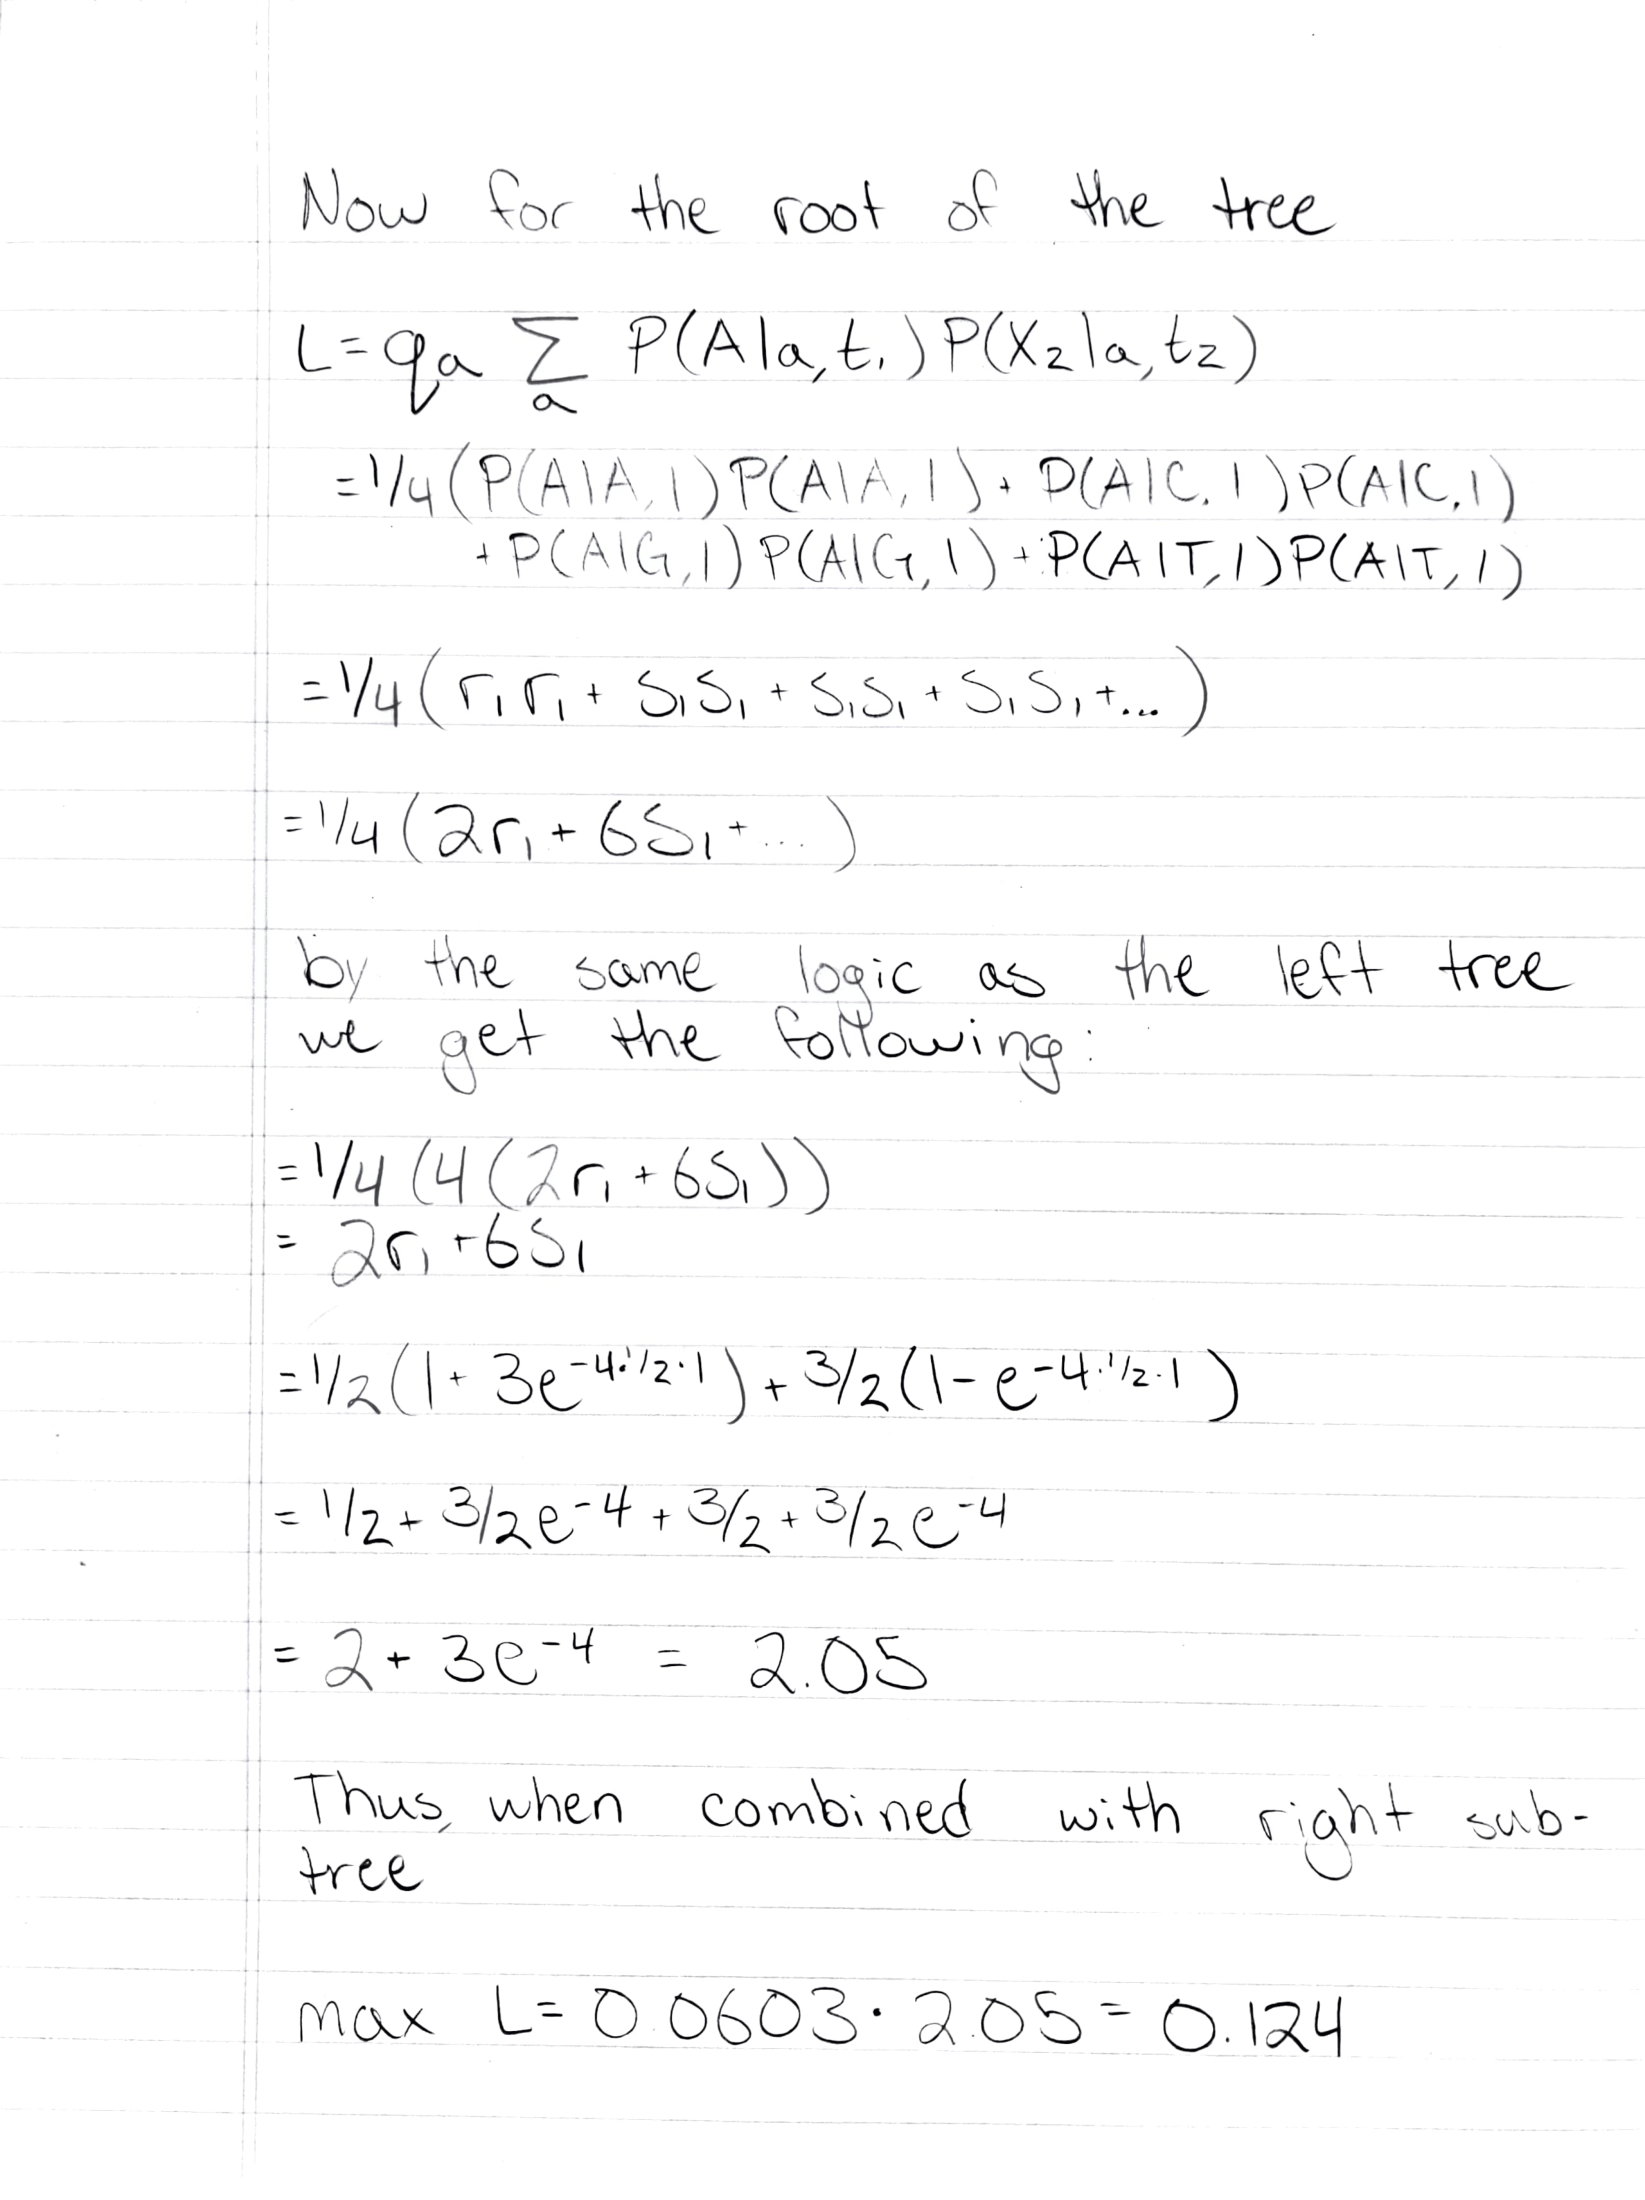 Now for the root of the tree
L = qₐ Σₐ P(A|a, t₁) P(X₂|a, t₂)
= 1/4 (P(A|A, 1) P(A|A, 1) + P(A|C, 1) P(A|C, 1)
+ P(A|G, 1) P(A|G, 1) + P(A|T, 1) P(A|T, 1)
= 1/4 (r₁r₁ + S₁S₁ + S₁S₁ + S₁S₁ + ...)
= 1/4 (2r₁ + 6S₁ + ...)
by the same logic as the left tree
we get the following:
= 1/4 (4 (2r₁ + 6S₁))
= 2r₁ + 6S₁
= 1/2 (1 + 3e^-4·1/2·1) + 3/2 (1 - e^-4·1/2·1)
= 1/2 + 3/2e^-4 + 3/2 + 3/2e^-4
= 2 + 3e^-4 = 2.05
Thus, when combined with right sub-
tree
max L = 0.0603 · 2.05 = 0.124